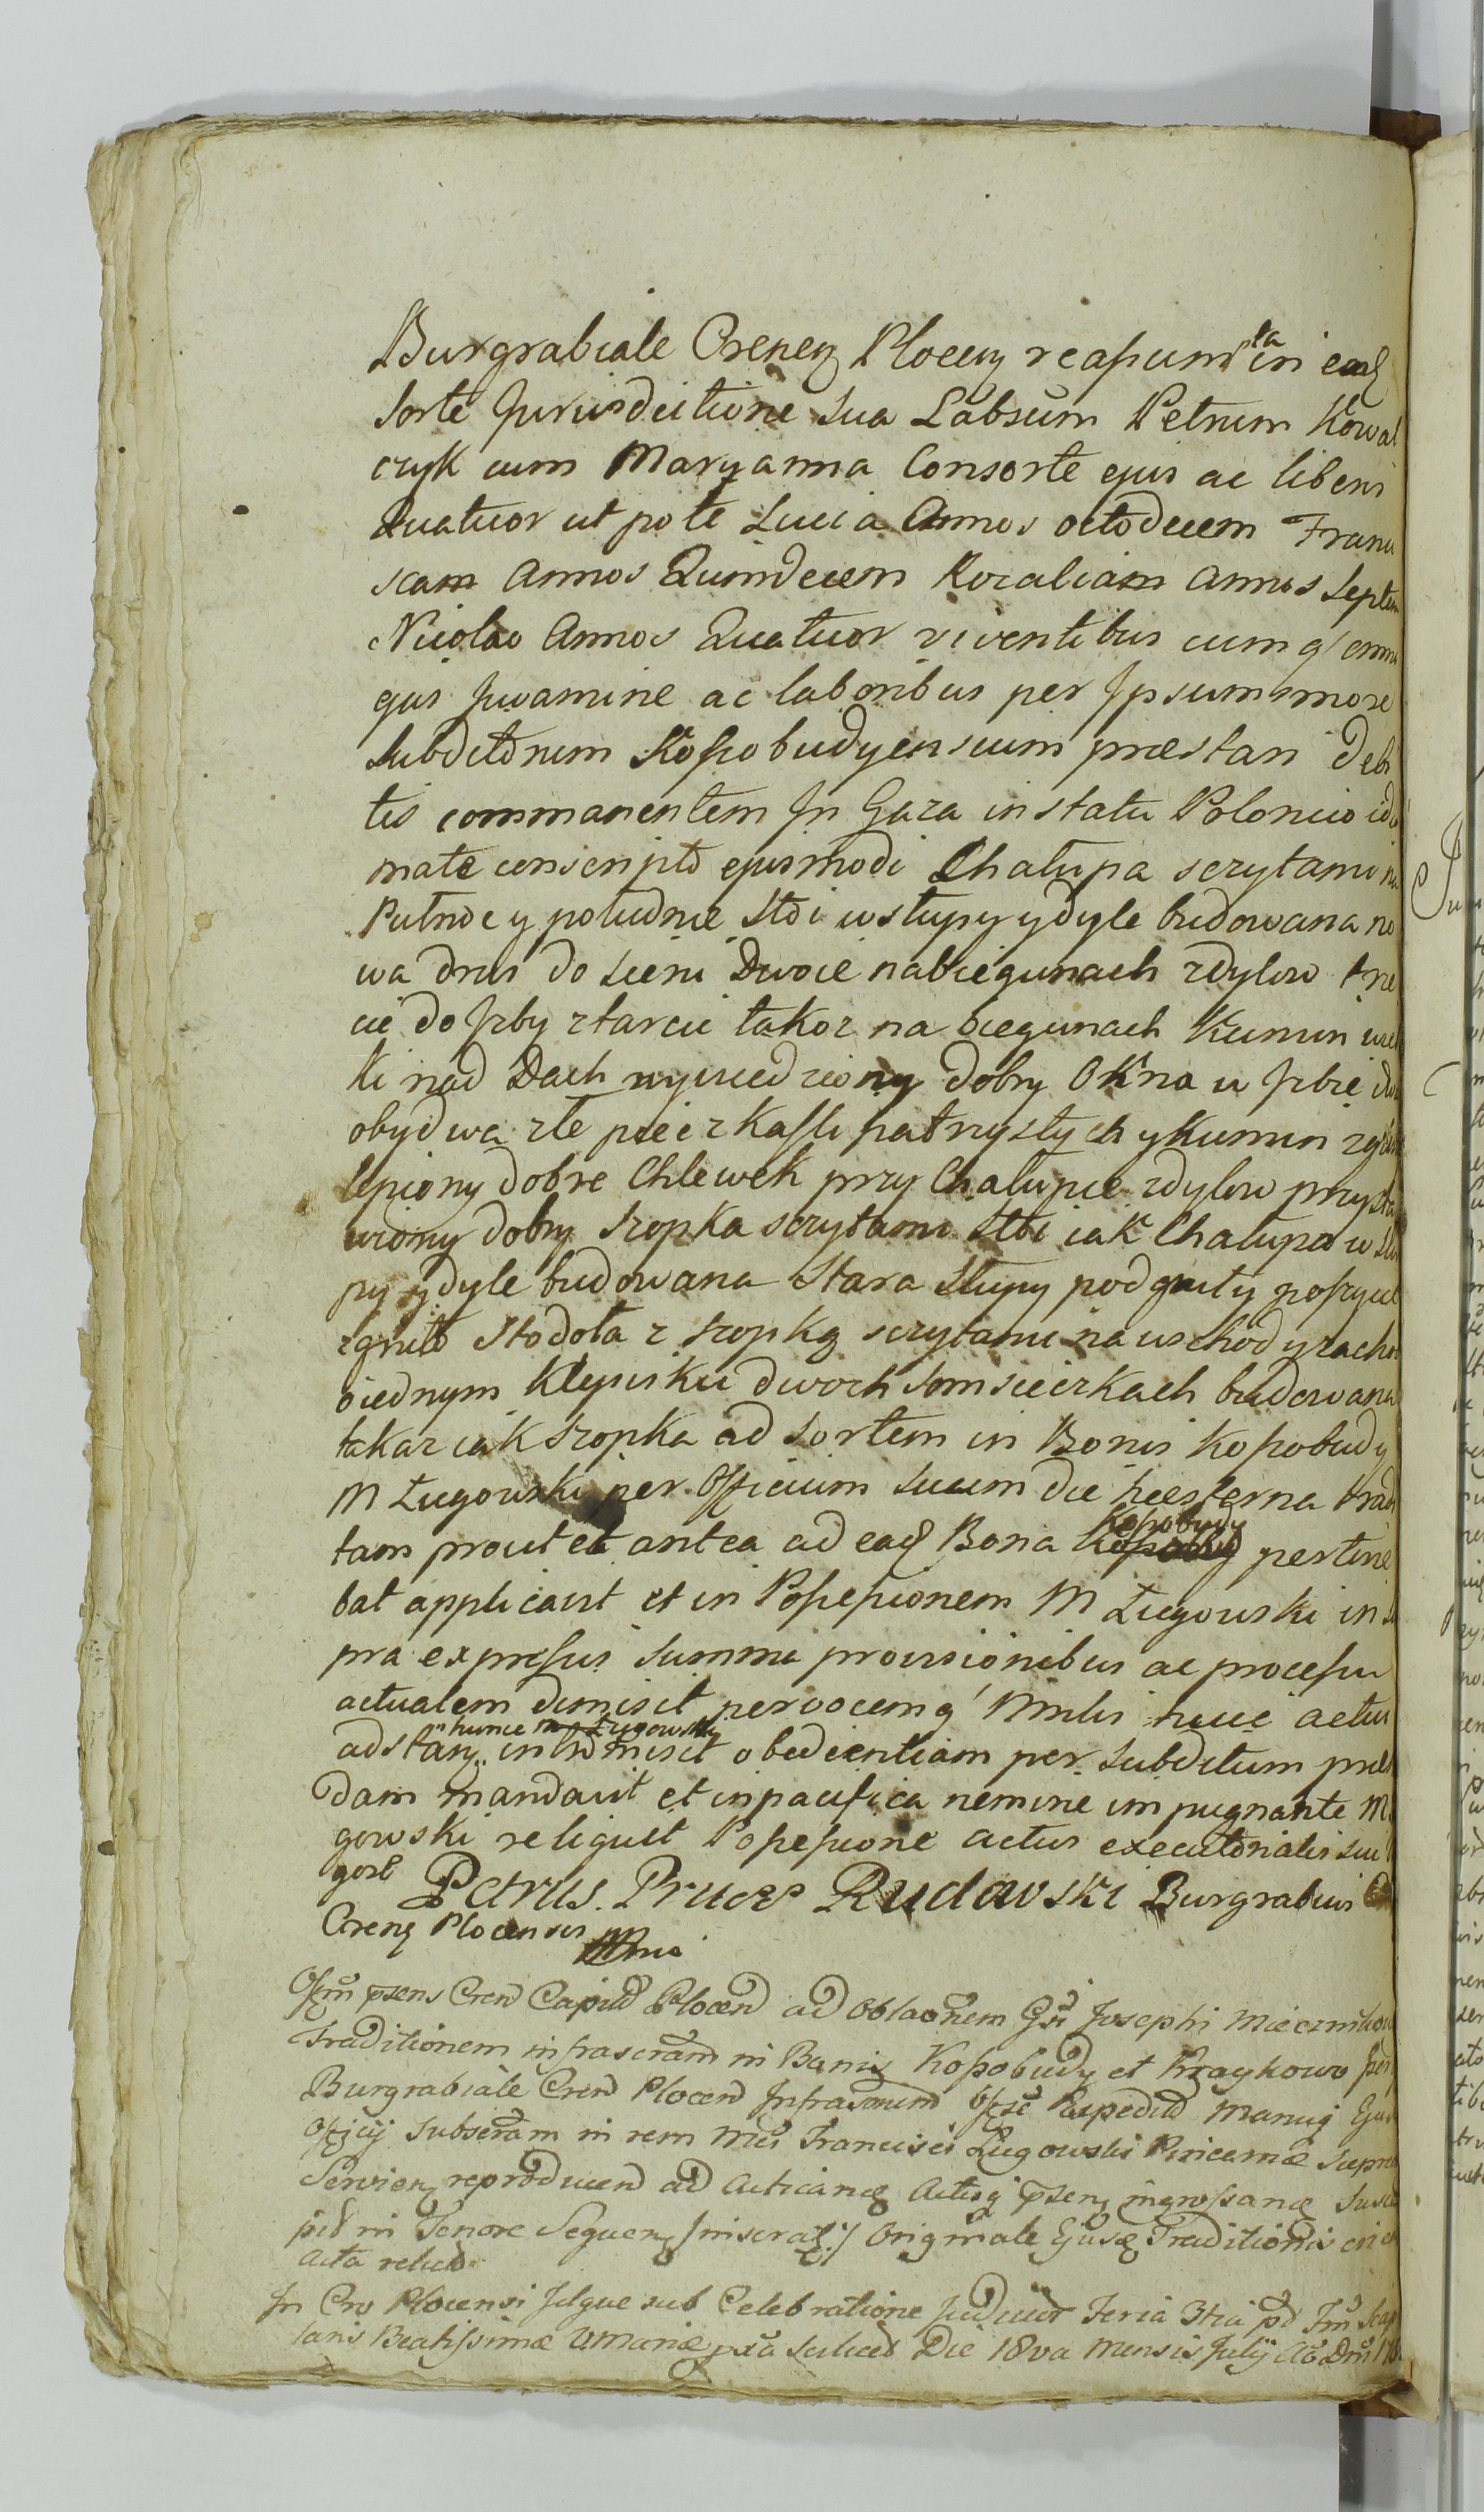 Burgrabiale Crenen Plocen reassumta in ead
Sorte Jurisdictione sua Labsum Petrum Kowal
czyk cum Maryanna Consorte ejus ac liberis
Quatuor ut pote Lucia Annos octodecem Franci
scam Annos Quindecem Rozaliam Annos Septem
Nicolao Annos Quatuor viventibus cumq omni
ejus Juvamine ac laboribus per Ipsum more
Subditorum Kossobudyensium præstari debi
tis commanentem In Gaza in statu Polonico idio
mate conscripto ejusmodi Chałupa sczytami na
Pułnoc y południe stoi w słupy y dyle budowana no
wa drzwi do sieni Dwoie na biegunach z dylow trze
cie do Jzby z tarcic takoz na biegunach Kumin wiel
ki nad Dach wywiedziony dobry Okna w Jzbie dwa
obydwa złe piec z Kafli patrzystych y Kumin z gliny
lepiony dobre Chlewek przy Chałupie z dylow przysta
wiony dobry Szopka sczytami stoi iak Chałupa w słu
py y dyle budowana Stara Słupy podgniły poszycie
zgniło Stodoła z szopką sczytami na wschod y zachod
o iednym Klepisku dwoch Somsieczkach budowana
takaz iak szopka ad Sortem in Bonis Kossobudy
M Ługowski per Officium Suum die hesterna tradi
tam prout et antea ad ead Bona Kossobudy pertine
bat applicavit et in Possessionem M Ługowski in su
pra expressis Summa provisionibus ac processu
actualem dimisit per vocemq Mnlis huic actui
adstan hunc M Ługowski intromisit obedientiam per Subditum præs
dam mandavit et in pacifica nemine impugnante M Łu
gowski reliquit Possessione actus executorialis sui
gore Petrus Prus Rudowski Burgrabius
Crens Plocensis
Offm psens Cren Capitl Plocen ad Oblaonem Gsi Josephi Miecznikow
Traditionem infrascram in Bonis Kossobudy et Krzaykowo per
Burgrabiale Cren Plocen Infrascnum Offse Expedit Manuq Ejus
Officij Subscram in rem Mci Francisci Ługowski Pincernæ Supra
Servien reproducen ad Acticanæ Actisq psen ingrossanæ Susce
pit in Tenore Sequen / inserat / Originale Ejusæ Traditionis
Acta relicto
In Cro Plocensi Jdque sub Celebratione Judicior Feria 3tia pt Fm Scap
laris Beatissimæ V Mariæ pxa scilicet Die 18va Mensis Julij Ao Dni 17